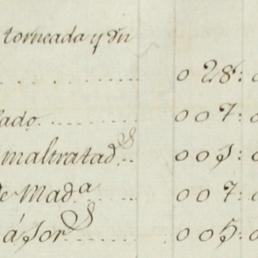 torneada y Vn
028:
ado 007:
maltratad.s 001:
de Mad.a 007:
005: